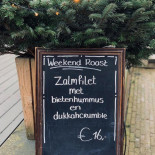 Weekend Roost
Zalmfilet
met
bietenhummus
en
dukkahcrumble
€16,-